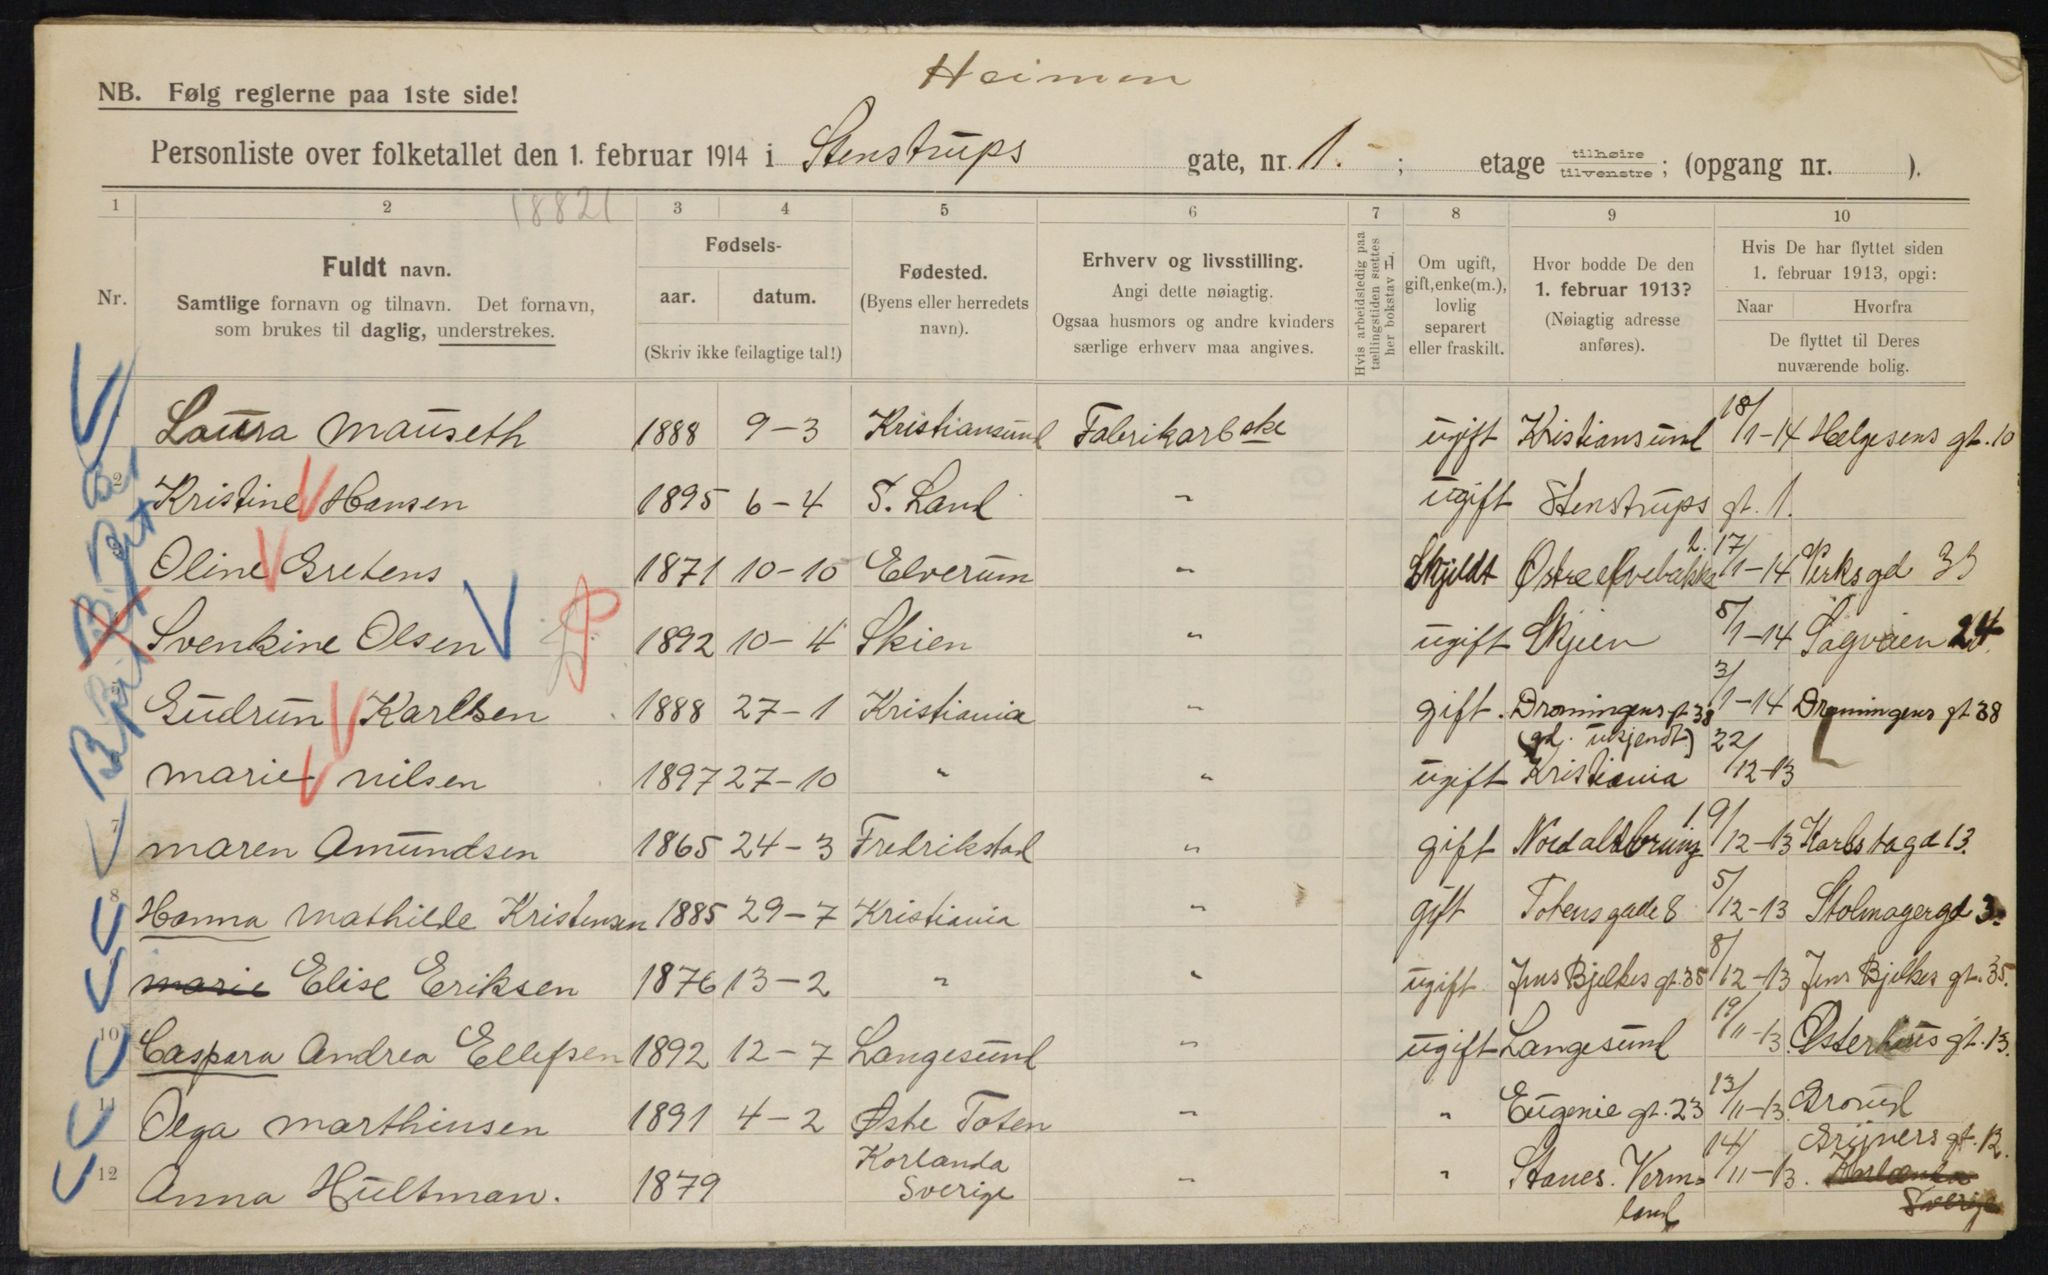 Heimen
NB. Følg reglerne paa 1ste side!
Personliste over folketallet den 1. februar 1914 i Stenstrups gate, nr. 1. ; etage tilhøire tilvenstre ; (opgang nr. ).
1 2 3 4 5 6 7 8 9 10
18821
Nr.
Fuldt navn.
Samtlige fornavn og tilnavn. Det fornavn,
som brukes til daglig, understrekes.
Fødsels-
aar. datum.
(Skriv ikke feilagtige tal!)
Fødested.
(Byens eller herredets
navn).
Erhverv og livsstilling.
Angi dette nøiagtig.
Ogsaa husmors og andre kvinders
særlige erhverv maa angives.
Hvis arbeidsledig paa
tællingstiden sættes
her bokstav L.
Om ugift,
gift, enke(m.),
lovlig
separert
eller fraskilt.
Hvor bodde De den
1. februar 1913?
(Nøiagtig adresse
anføres).
Hvis De har flyttet siden
1. februar 1913, opgi:
Naar Hvorfra
De flyttet til Deres
nuværende bolig.
Laura Mauseth 1888 9-3 Kristiansund Fabrikarbske ugift Kristiansund 18/1-14 Helgesens gt. 10
2 Kristine Hansen 1895 6-4 S. Land " ugift Stenstrups gt. 1.
Oline Gretens 1871 10-10 Elverum " Skjildt Østre 17/1-14 33
Svenkine Olsen 1892 10-4 Skien " ugift Skjien 5/1-14 Sagveien 24
Gudrun Karlsen 1888 27-1 Kristiania " gift. Dronningens gt 38 3/1-14 Dronningens gt 38
(gd. ukjendt)
Marie Nilsen 1897 27-10 " " ugift Kristiania 22/12-13
7 Maren Amundsen 1865 24-3 Fredrikstad " gift 19/12-13 13.
8 Hanna Mathilde Kristensen 1885 29-7 Kristiania " gift Totens gade 8 5/12-13 Stolmagergd 3.
Marie Elise Eriksen 1876 13-2 " " ugift Jens Bjelkes gt. 35 8/12-13 Jens Bjelkes gt. 35.
10 Caspara Andrea Ellefsen 1892 12-7 Langesund " ugift Langesund 19/11-13 Østerhaus gt. 13.
11 Olga Marthinsen 1891 4-2 Øste Toten " " Eugenie gt. 23 13/11-13 Grorud
12 Anna Hultman. 1879 Korlanda Sverige " " Stanes. Vermland 14/11-13. Grüners gt. 12.
Korlanda
Sverige